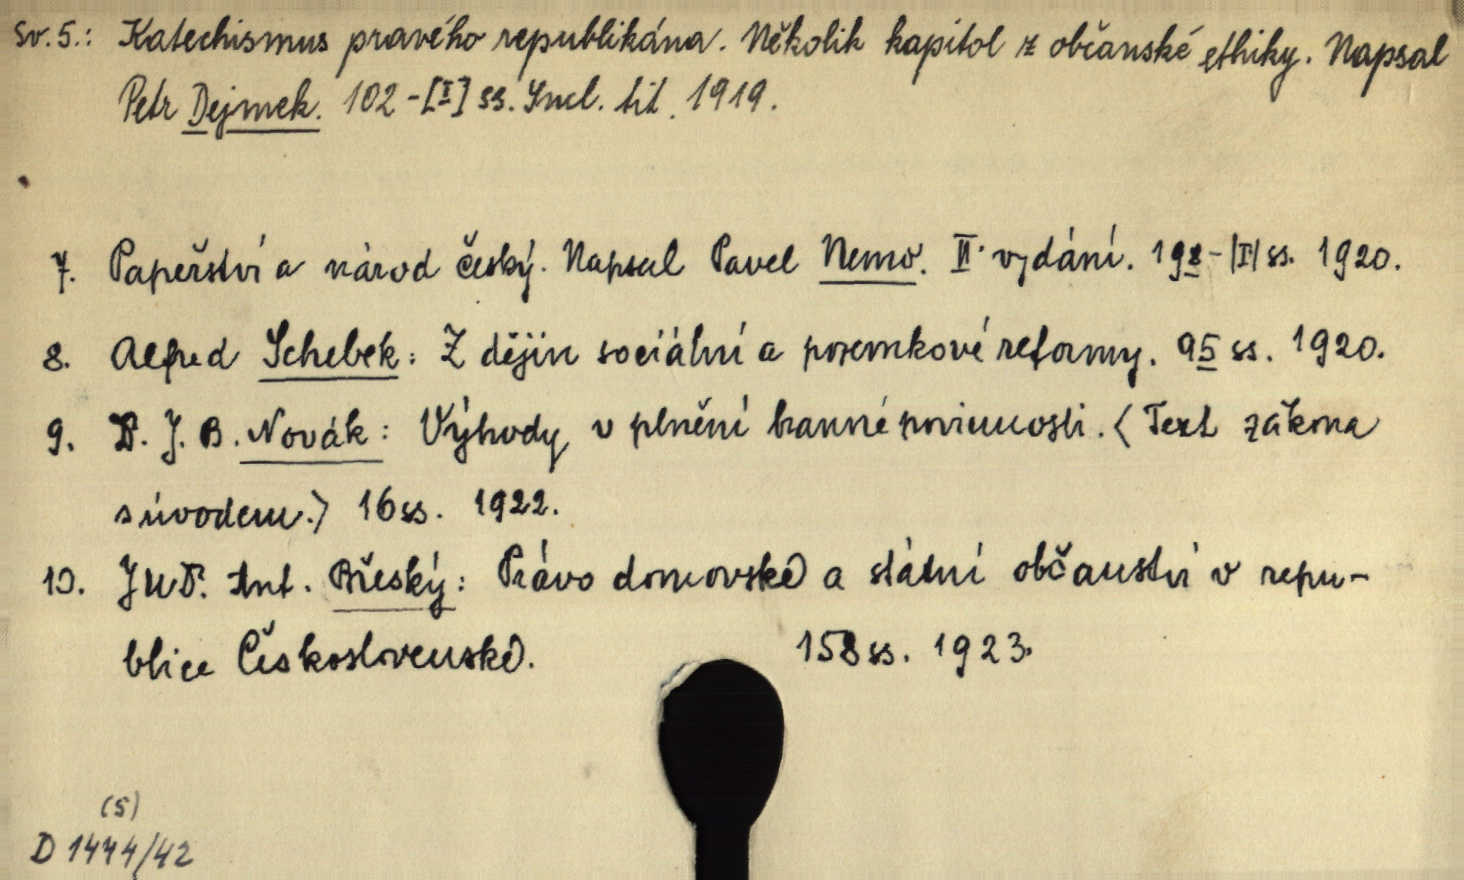 Sv. 5.: Katechismus pravého republikána. Několik kapitol z občanské ethiky. Napsal
Petr Dejmek. 102-[I] ss. Incl. tit. 1919.
7. Papežství a národ český. Napsal Pavel Nemo. II. vydání. 198-|I| ss. 1920.
8. Alfred Schebek: Z dějin sociální a pozemkové reformy. 95 ss. 1920.
9. D. J. B. Novák: Výhody v plnění branné povinnosti. <Text zákona
s úvodem.> 16 ss. 1922.
10. JUD. Ant. Břeský: Právo domovské a státní občanství v repu-
blice Československé. 158 ss. 1923.
(5)
D 1444/42